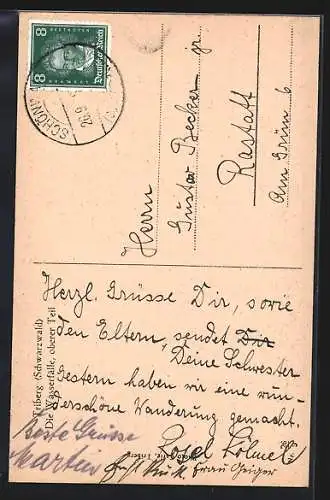 8 BEETHOVEN 8
Deutsches Reich
SCHÖNWA
Herrn
Gustav Becker jr.
Rastatt
Am Grün 6
Triberg (Schwarzwald)
Die Wasserfälle, oberer Teil
Herzl. Grüsse Dir, sowie
den Eltern, sendet Dir
Deine Schwester
Gestern haben wir eine wun-
derschöne Wanderung gemacht.
Beste Grüsse
Martin
Frau Geiger